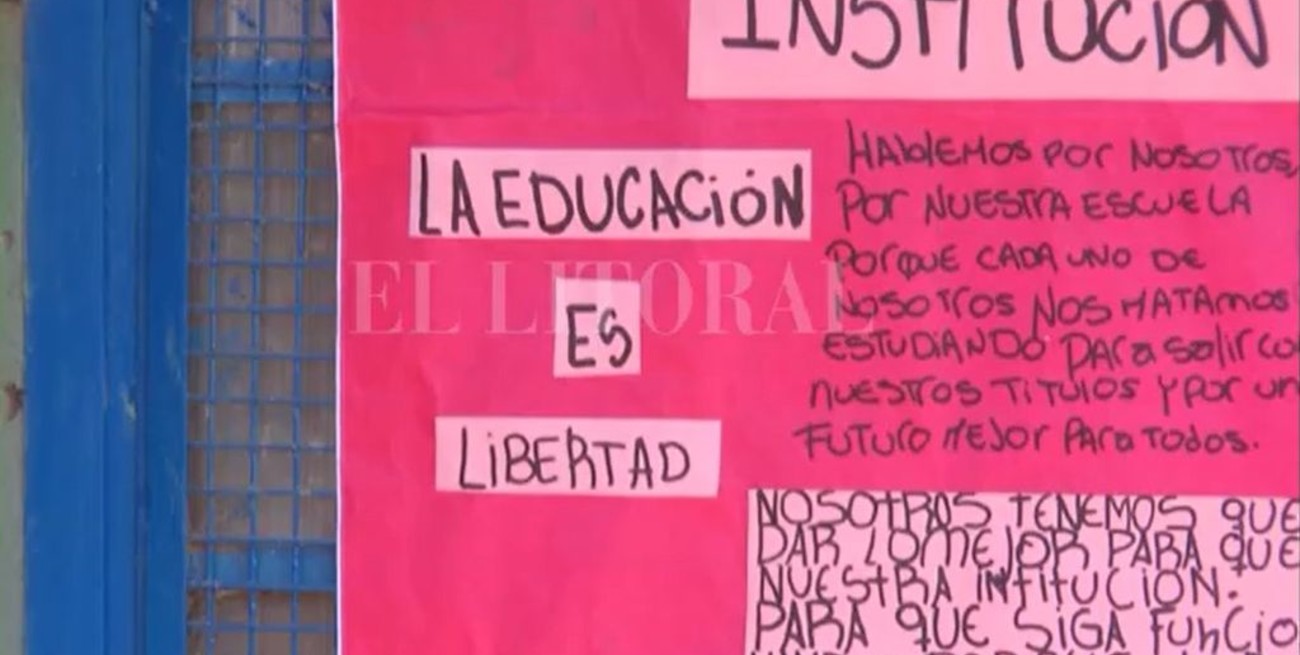 INSTITUCIÓN
LA EDUCACIÓN
ES
LIBERTAD
HABLEMOS POR NOSOTROS,
POR NUESTRA ESCUELA
PORQUE CADA UNO DE
NOSOTROS NOS MATAMOS
ESTUDIANDO PARA SALIR CO
NUESTROS TITULOS Y POR UN
FUTURO MEJOR PARA TODOS.
NOSOTRAS TENEMOS QUE
DAR LO MEJOR PARA QUE
NUESTRA INFITUCIÓN.
PARA QUE SIGA FUNCIO
EL LITORAL